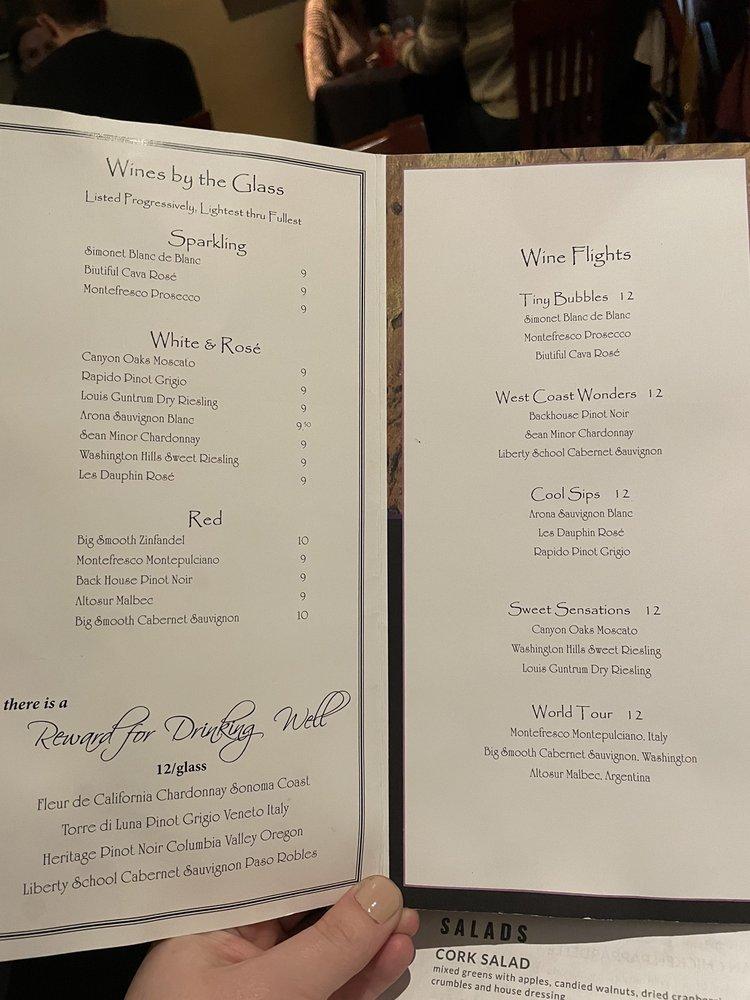 Wines by the Glass
Listed Progressively, Lightest thru Fullest
Sparkling
Simonet Blanc de Blanc 9
Biutiful Cava Rosé 9
Montefresco Prosecco 9
White & Rosé
Canyon Oaks Moscato 9
Rapido Pinot Grigio 9
Louis Guntrum Dry Riesling 9
Arona Sauvignon Blanc 9.50
Sean Minor Chardonnay 9
Washington Hills Sweet Riesling 9
Les Dauphin Rosé 9
Red
Big Smooth Zinfandel 10
Montefresco Montepulciano 9
Back House Pinot Noir 9
Altosur Malbec 9
Big Smooth Cabernet Sauvignon 10
there is a
Reward for Drinking Well
12/glass
Fleur de California Chardonnay Sonoma Coast
Torre di Luna Pinot Grigio Veneto Italy
Heritage Pinot Noir Columbia Valley Oregon
Liberty School Cabernet Sauvignon Paso Robles
Wine Flights
Tiny Bubbles 12
Simonet Blanc de Blanc
Montefresco Prosecco
Biutiful Cava Rosé
West Coast Wonders 12
Backhouse Pinot Noir
Sean Minor Chardonnay
Liberty School Cabernet Sauvignon
Cool Sips 12
Arona Sauvignon Blanc
Les Dauphin Rosé
Rapido Pinot Grigio
Sweet Sensations 12
Canyon Oaks Moscato
Washington Hills Sweet Riesling
Louis Guntrum Dry Riesling
World Tour 12
Montefresco Montepulciano, Italy
Big Smooth Cabernet Sauvignon, Washington
Altosur Malbec, Argentina
SALADS
CORK SALAD
mixed greens with apples, candied walnuts, dried
crumbles and house dressing